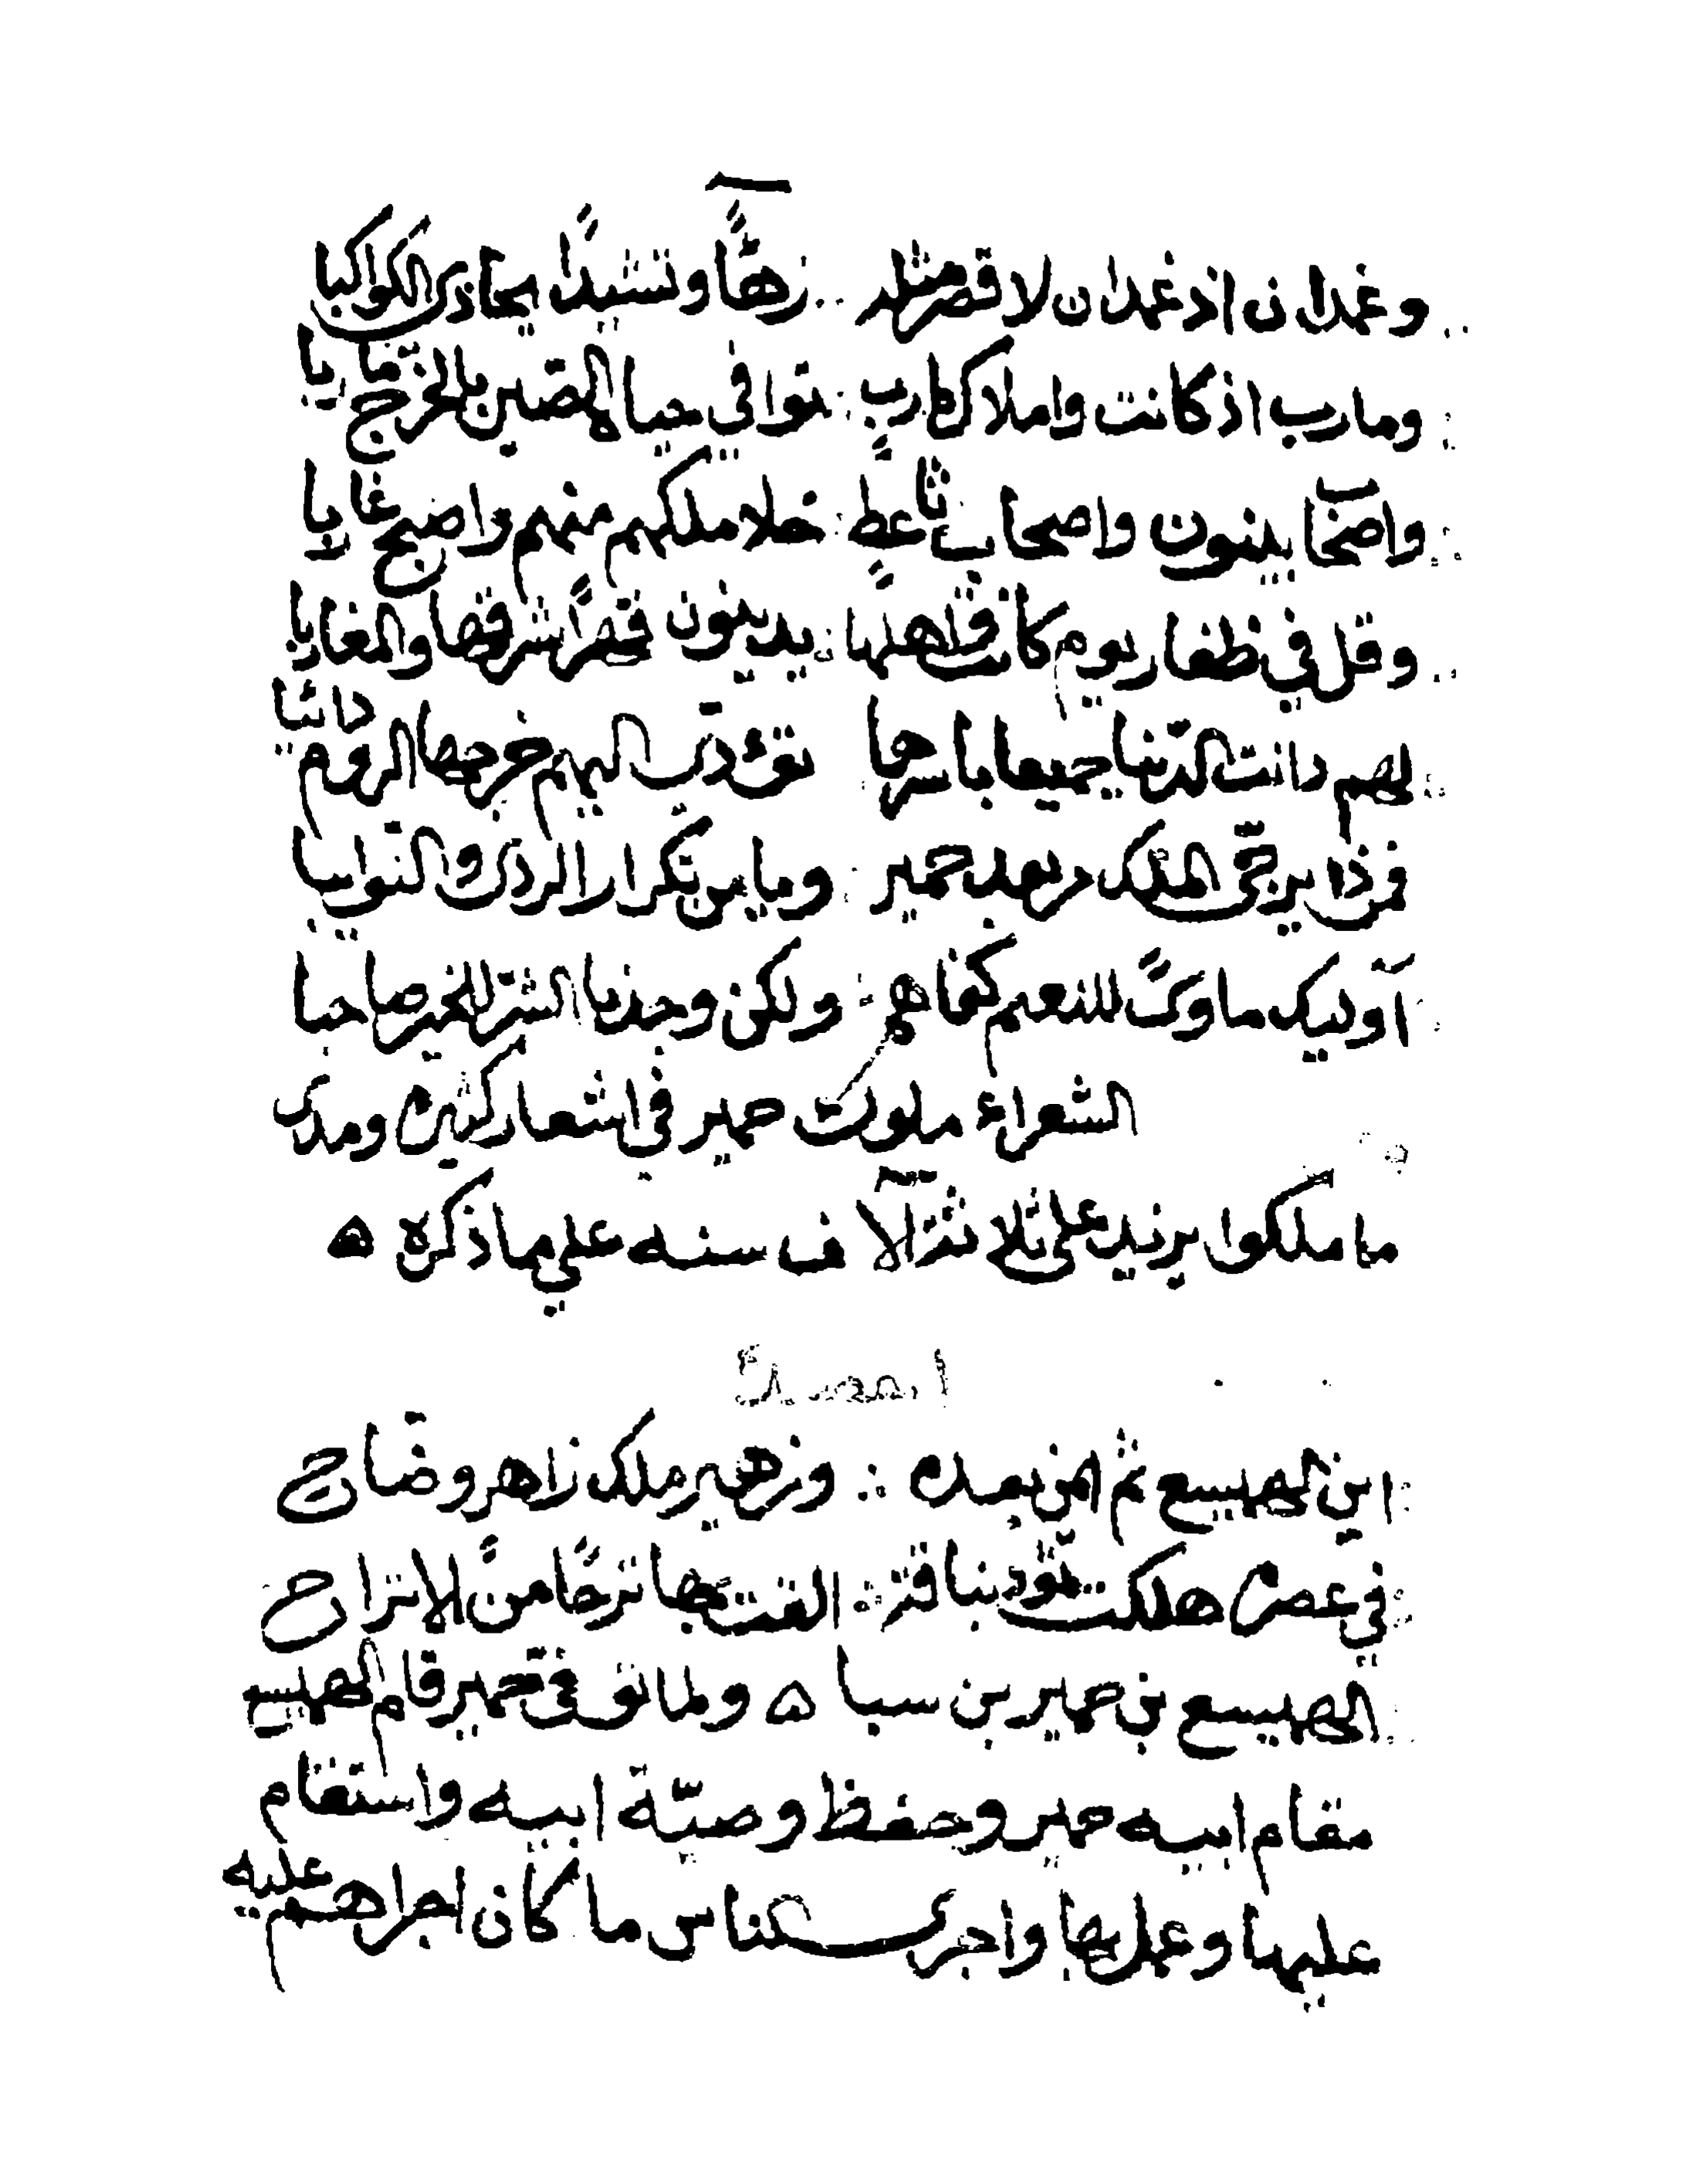 وغمدان اذ غمدان لا قصر مثله .. زهاً وتشيدًا يحاذى الكواكبا
ومارب اذ كانت واملاك مارب : توافي حبا الصين بالخرج ماربا
واصحاب بينون واصحاب ناعط : خلا ملكهم منهم واصبح غايبا
وقل في ظفار يوم كانت واهلها : يدينون قهرًا شرقها والمغاربا
لهم دانت الدنيا جميعا باسرها تؤدى اليهم خرجها الروم دائبا
فمن ذا يرجى الملك من بعد حمير : ويامن تكرار الردى والنوايبا
اوليك ماوىً للنعم كفاهم : ولكن وجدنا الشر للخير صاحبا
الشعراء ملوك حمير في اشعار كثيره ومدى
ما ملكوا يزيد على ثلاثة آلاف سنه على ما ذكره ه
اين الهميسع ثم ايمن بعده : وزهير ملك زاهر وضاح
في عصره هلكت ثمود بناقة : الفت بها ترحًا من الاتراح
الهميسع بن حمير بن سبا ه ولما توفى حمير قام الهميسع
مقام ابيه حمير وحفظ وصيّة ابيه واستقام
عليها وعمل بها واجرى الناس ما كان اجراهم عليه